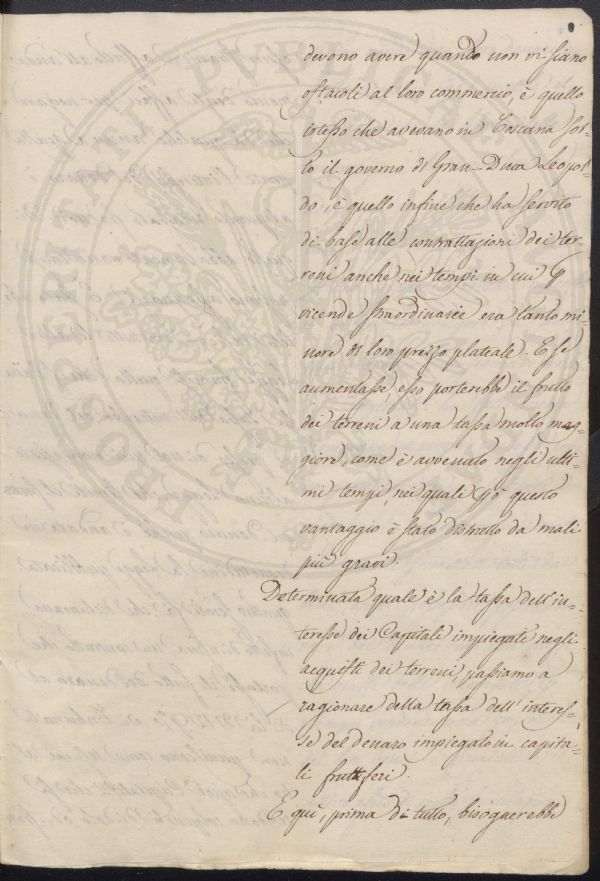 devono avere quando non vi siano
ostacoli al loro commercio, è quello
istesso che avevano in Toscana sot-
to il governo di Gran-Duca Leopol-
do, è quello infine che ha servito
di base alle contrattazioni dei ter-
reni anche nei tempi in cui
vicende straordinarie era tanto mi-
nore il loro prezzo plateale. E se
aumentasse, esso porterebbe il frutto
dei terreni a una tassa molto mag-
giore, come è avvenuto negli ulti-
mi tempi, nei quali però questo
vantaggio è stato distrutto da mali
più gravi.
Determinata quale è la tassa dell'in-
teresse dei Capitali impiegati negli
acquisti dei terreni, passiamo a
ragionare della tassa dell'interes-
se del denaro impiegato in capita-
li fruttiferi.
E quì, prima di tutto, bisognerebbe
PROSPERITATI PVBLICAE